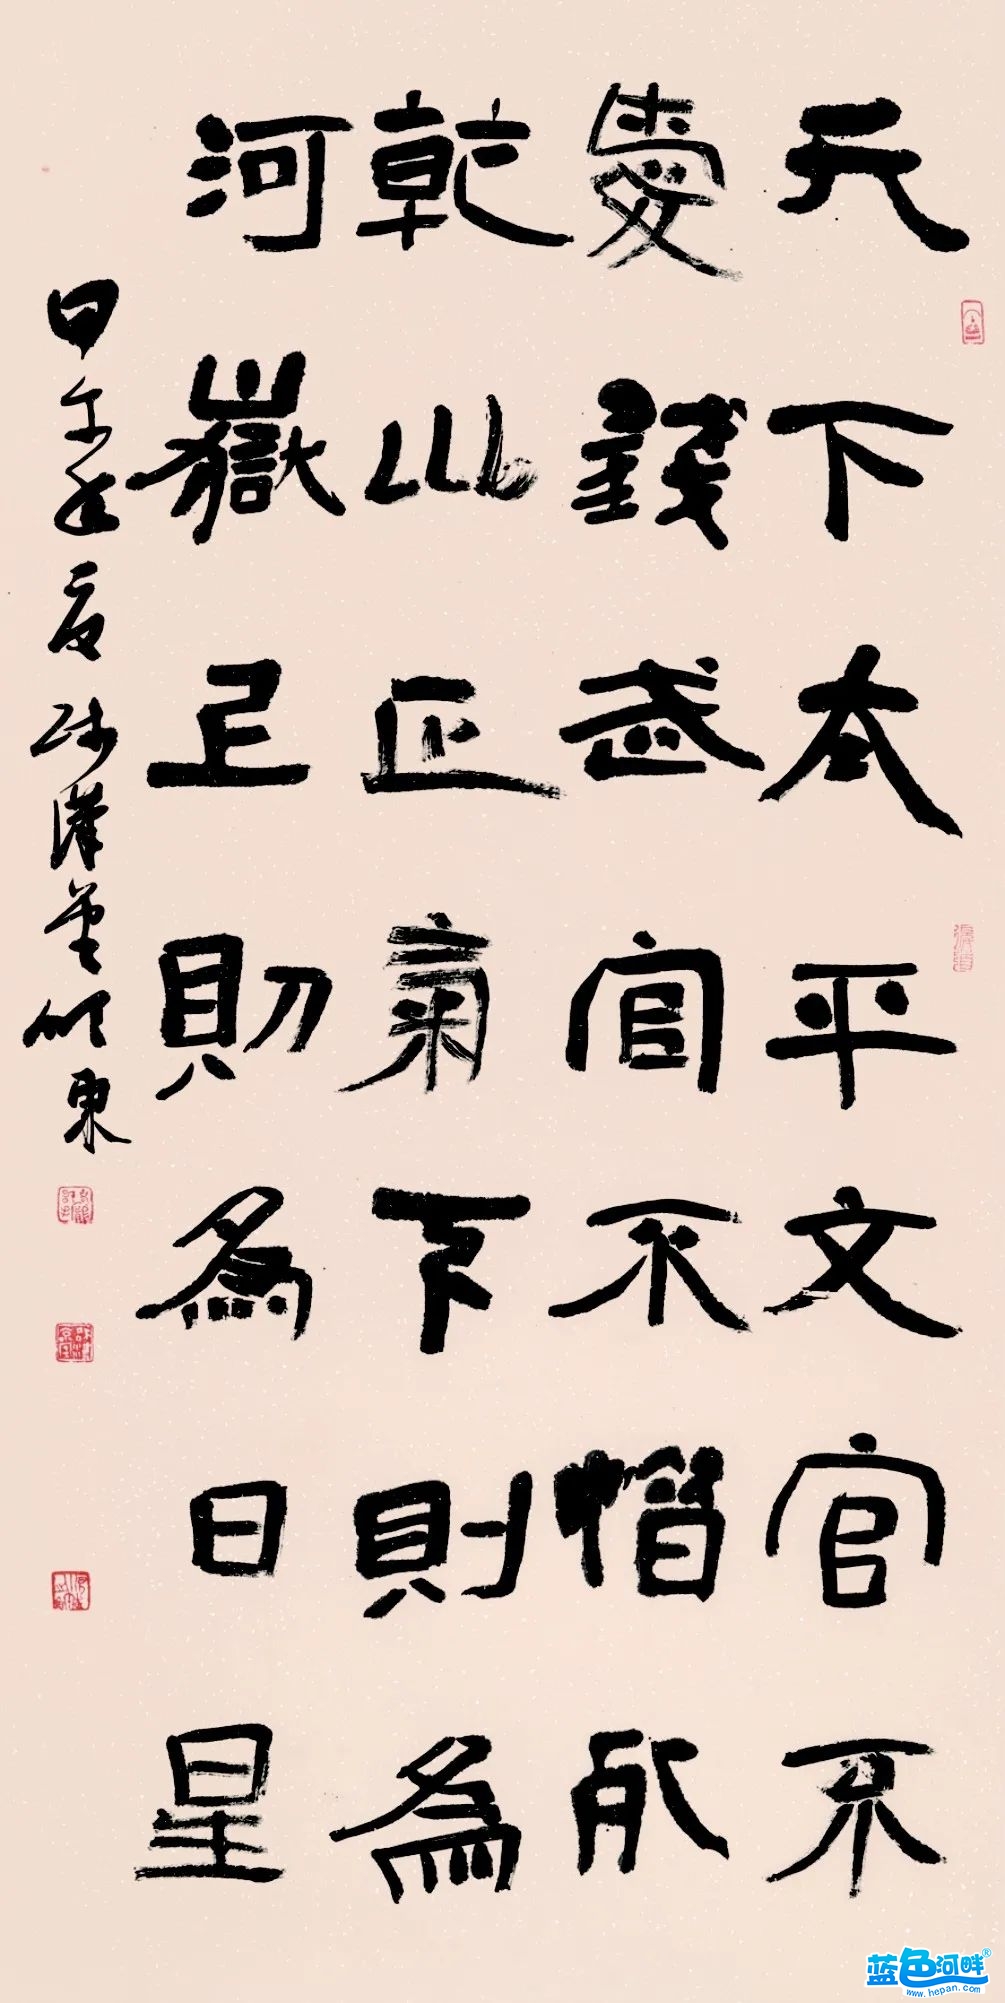 天下太平文官不
愛錢武官不惜死
乾坤正氣下則為
河嶽上則為日星
甲午年夏於漢堂 東
蓝色河畔®
www.hepan.com